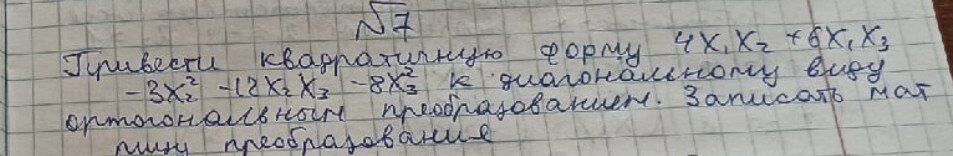 √7
Привести квадратичную форму 4x₁x₂ + 6x₁x₃
-3x₂² -12x₂x₃ -8x₃² к диагональному виду
ортогональным преобразованием. Записать мат
рицу преобразования